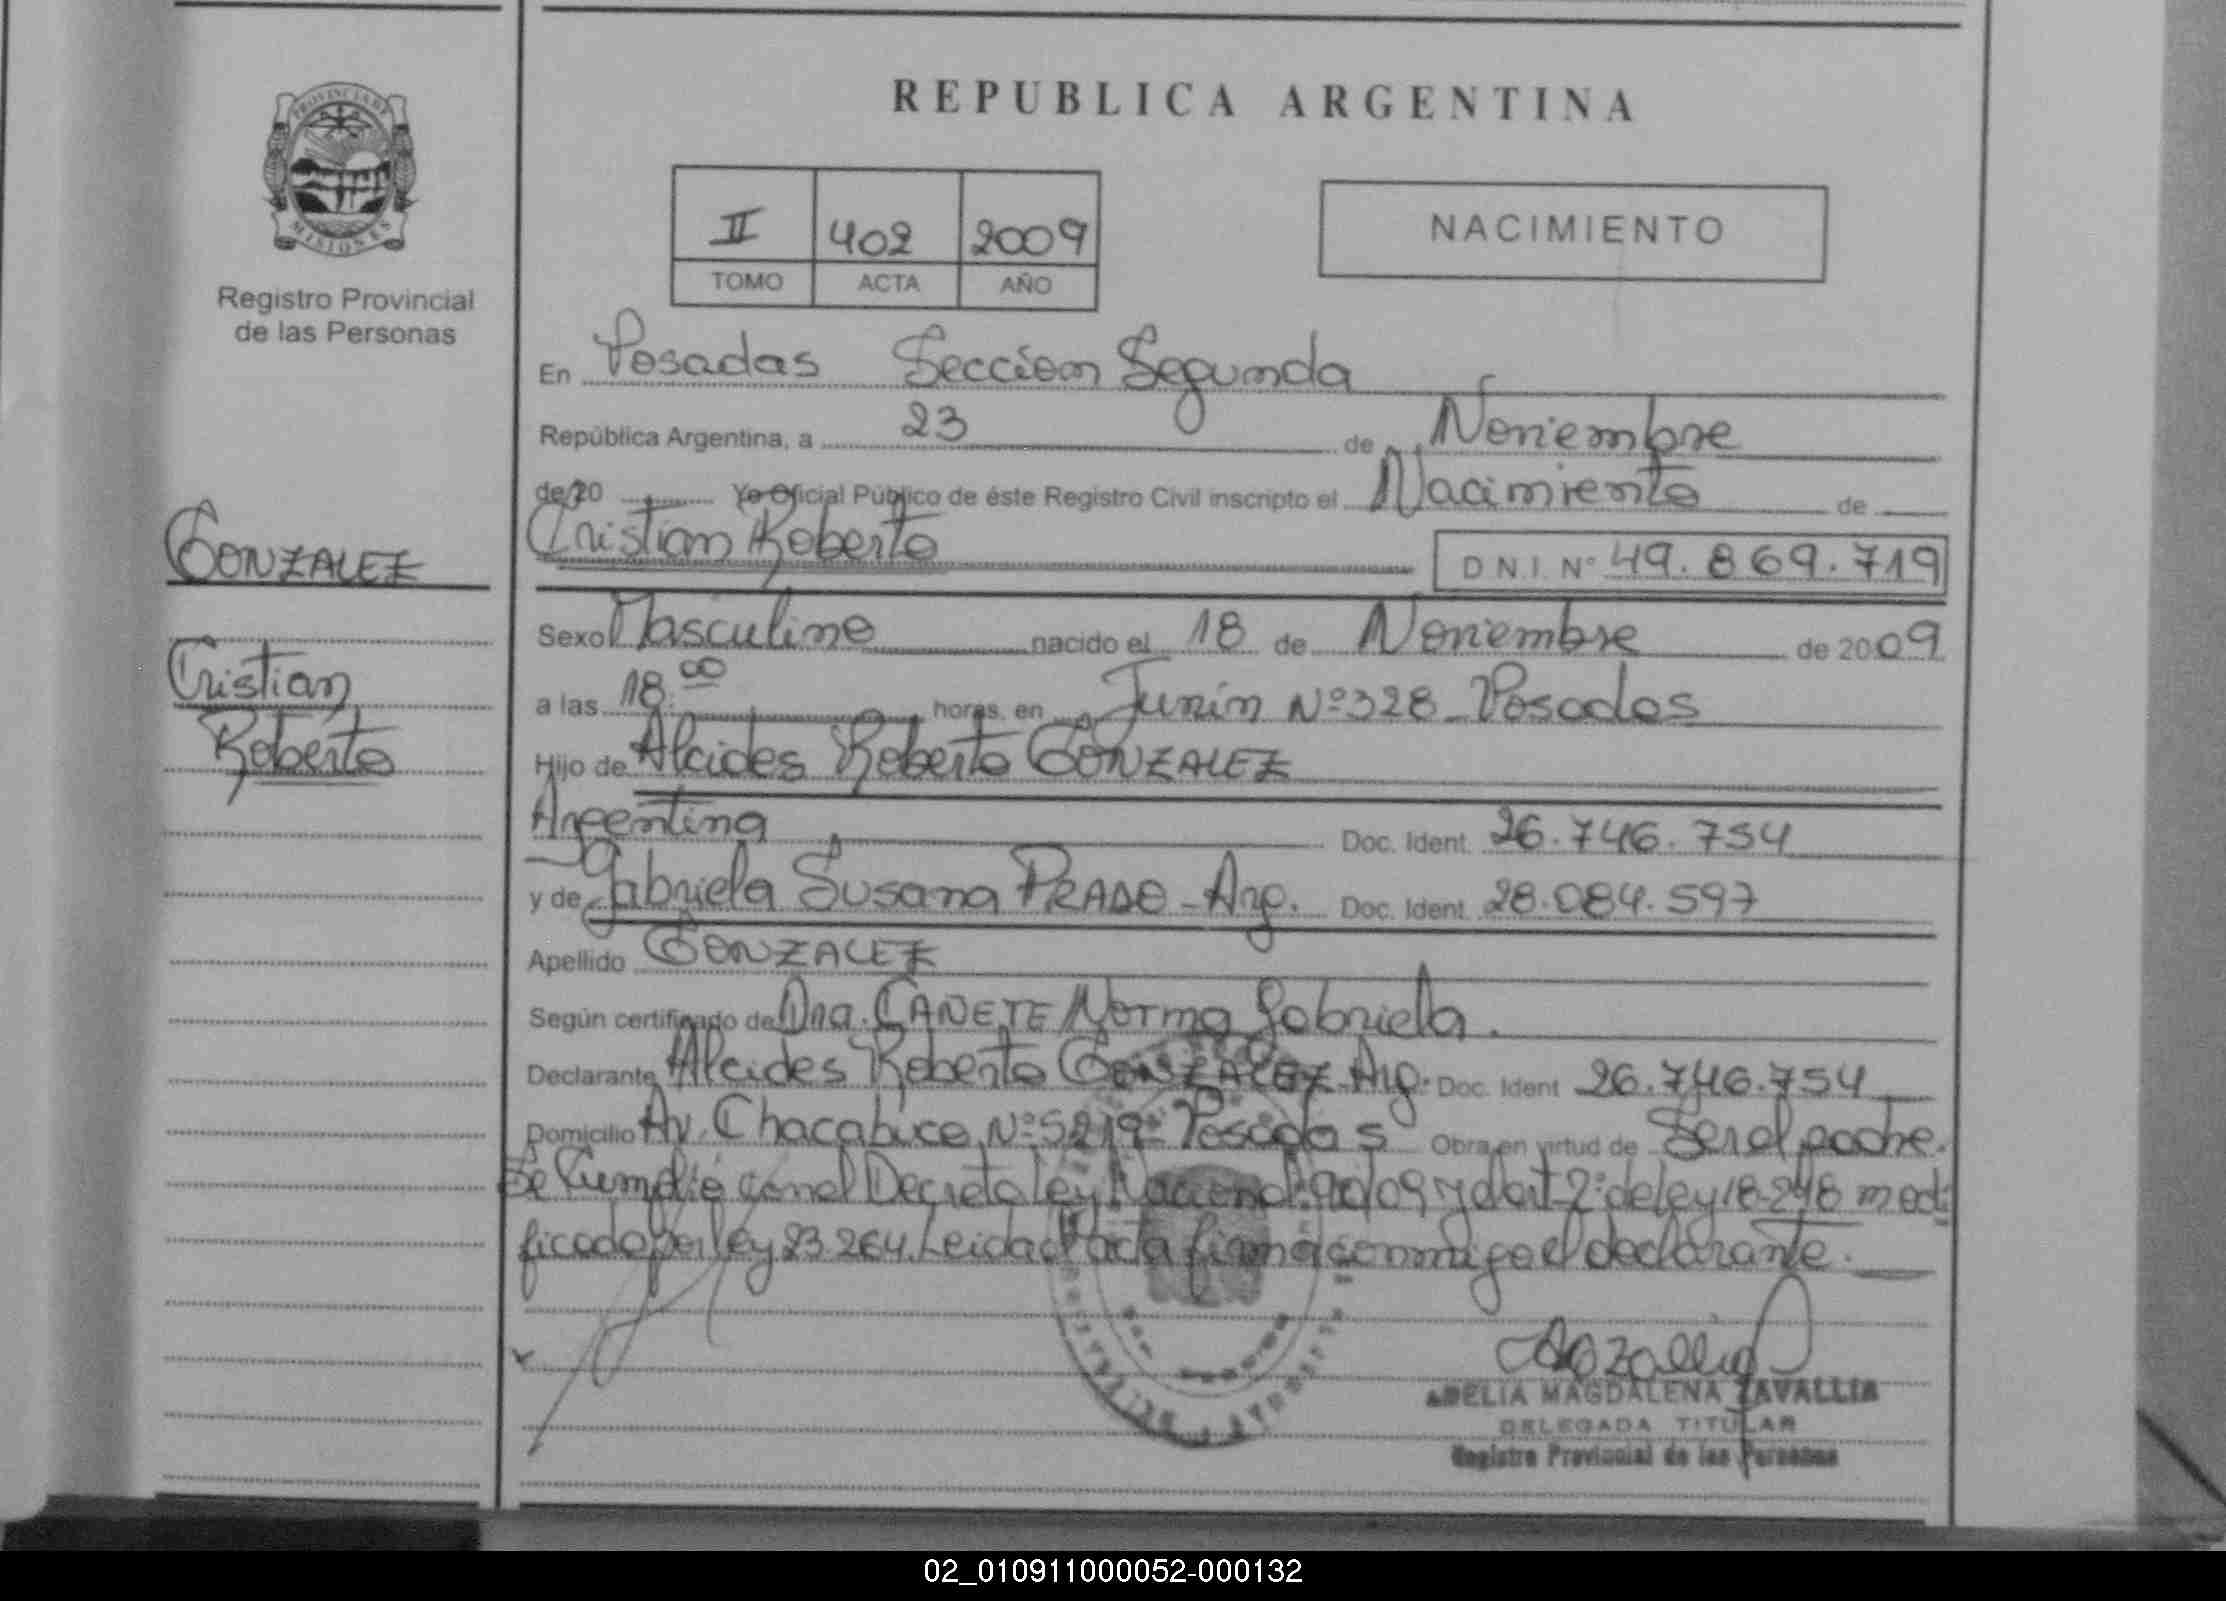 REPUBLICA ARGENTINA
PROVINCIA DE
MISIONES
Registro Provincial
de las Personas
II 402 2009
TOMO ACTA AÑO
NACIMIENTO
En Posadas Sección Segunda
República Argentina, a 23 de Noviembre
de 20 Yo Oficial Público de éste Registro Civil inscripto el Nacimiento de
GONZALEZ
Cristian Roberto D N.I. N° 49.869.719
Sexo Masculino nacido el 18 de Noviembre de 2009
Cristian
Roberto
a las 18.00 horas, en Junín Nº 328 Posadas
Hijo de Alcides Roberto GONZALEZ
Argentina Doc. Ident. 26.746.754
y de Gabriela Susana PRADO - Arg. Doc. Ident. 28.084.597
Apellido GONZALEZ
Según certificado de Dra. CAÑETE Norma Gabriela.
Declarante Alcides Roberto GONZALEZ Arg. Doc. Ident 26.746.754
Domicilio Av. Chacabuco Nº 5219 Posadas Obra en virtud de Ser el padre.
Se Cumplió con el Decreto ley Nacional 90/09 y del art 2º de ley 18.248 modi
ficado por ley 23.264. Leida el acta firma conmigo el declarante.
ADELIA MAGDALENA ZAVALLIA
DELEGADA TITULAR
Registro Provincial de las Personas
02_010911000052-000132